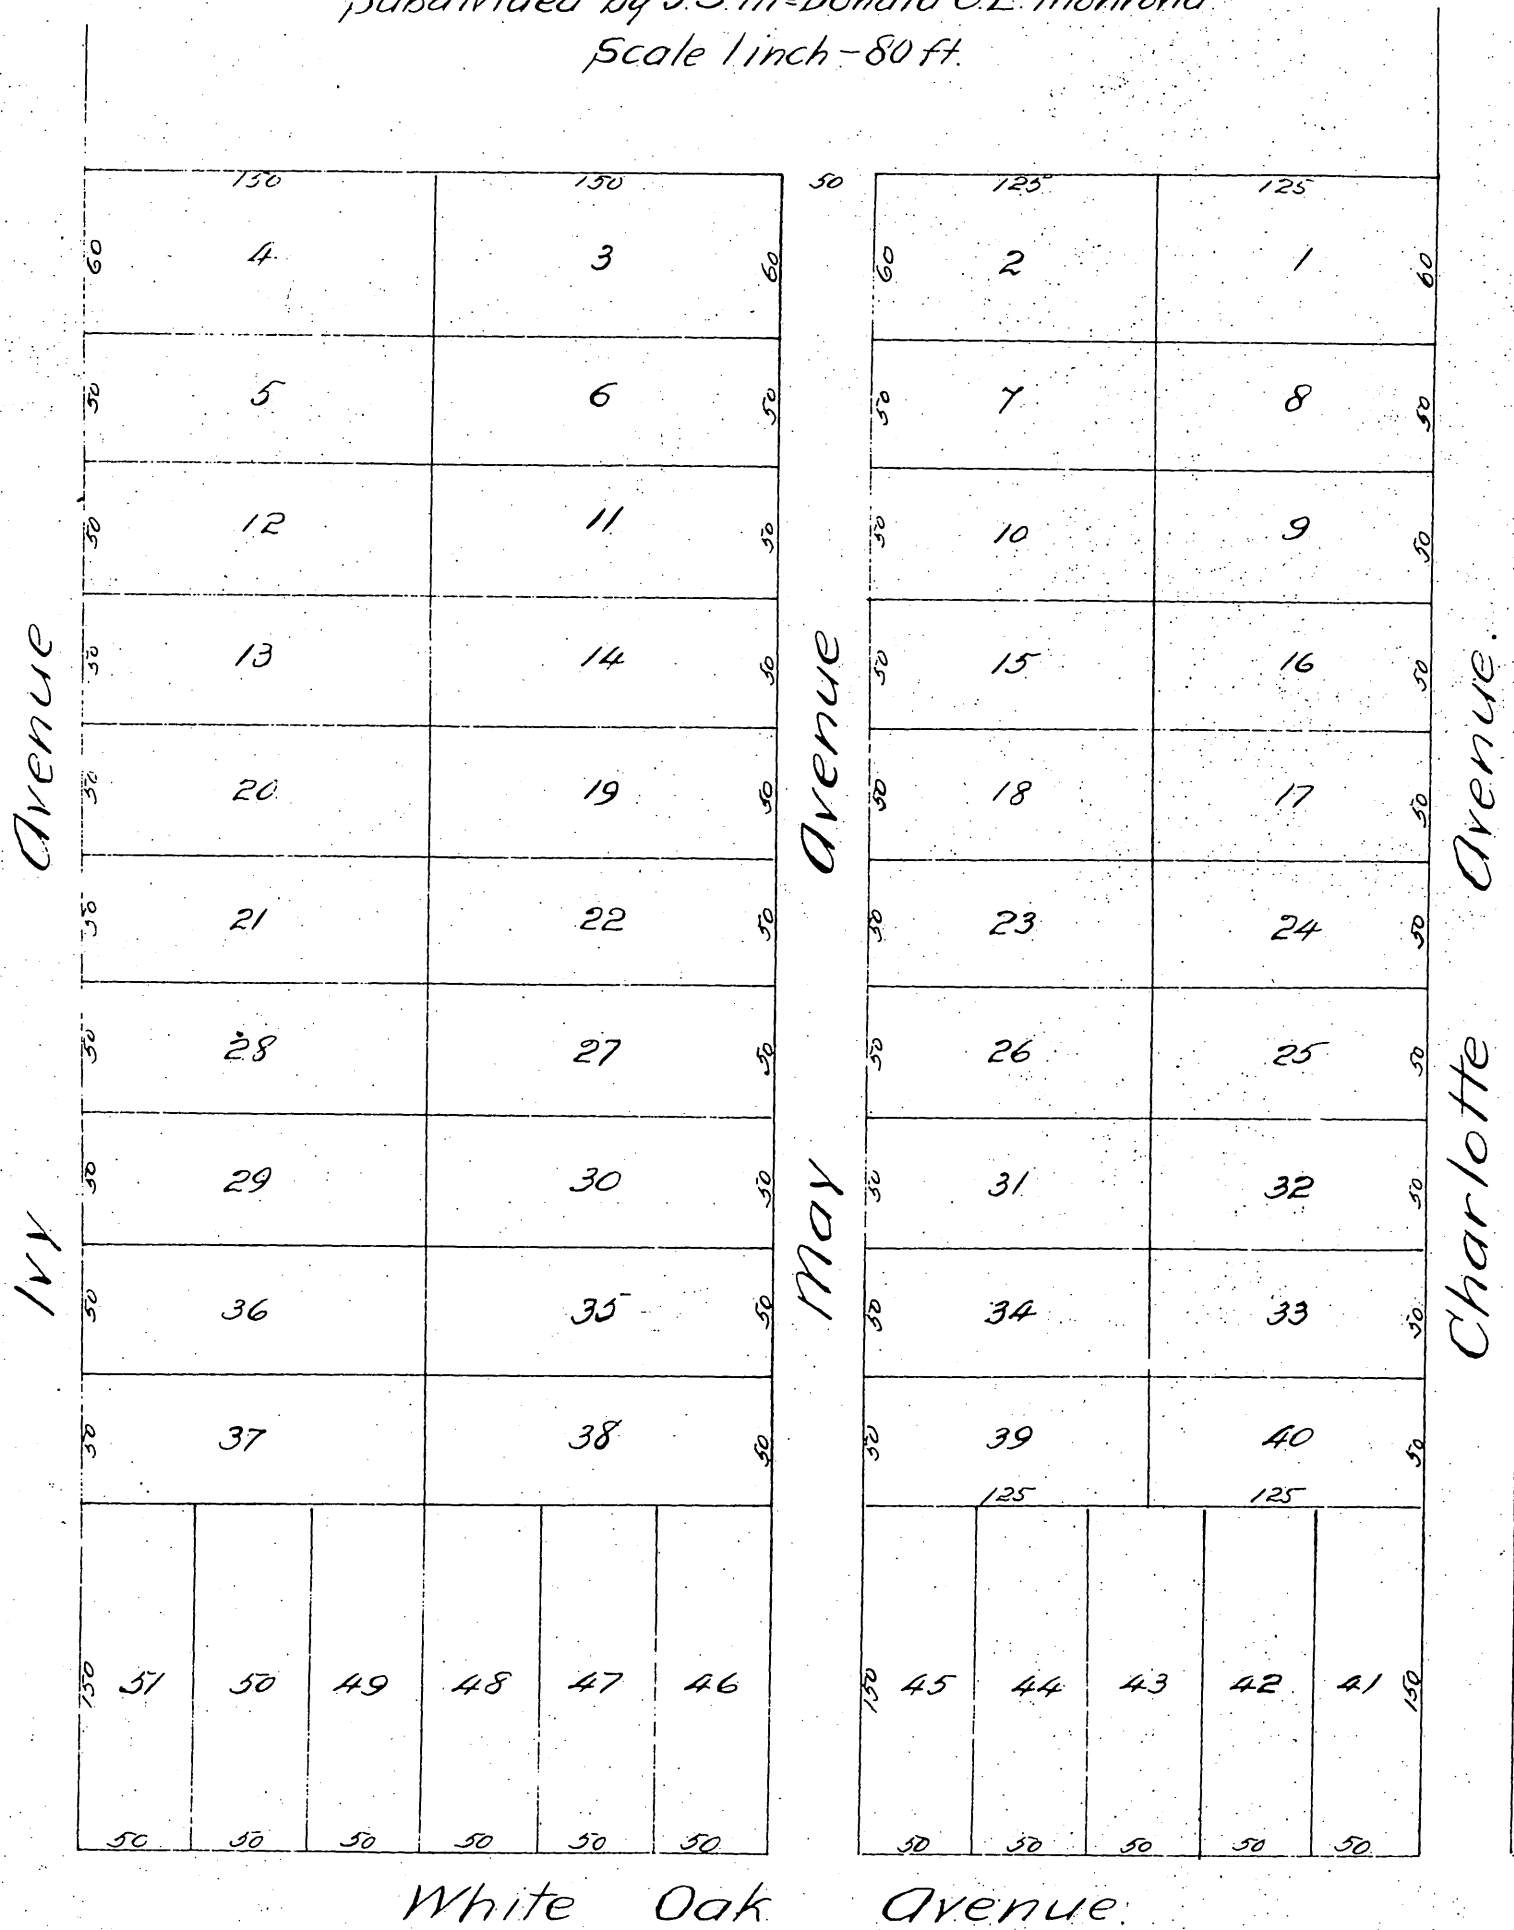 Subdivided by J.S. McDonald C.E. Monrovia
Scale 1 inch - 80 ft.
150 150 50 125 125
60 4 3 60 60 2 1 60
50 5 6 50 50 7 8 50
50 12 11 50 50 10 9 50
50 13 14 50 50 15 16 50
50 20 19 50 50 18 17 50
50 21 22 50 50 23 24 50
50 28 27 50 50 26 25 50
50 29 30 50 50 31 32 50
50 36 35 50 50 34 33 50
50 37 38 50 50 39 40 50
125 125
150 51 50 49 48 47 46 150 45 44 43 42 41 150
50 50 50 50 50 50 50 50 50 50 50
Ivy Avenue
May Avenue
Charlotte Avenue.
White Oak Avenue.